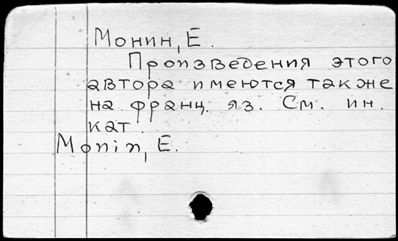 Монин, Е.
Произведения этого
автора имеются также
на франц. яз. См. ин.
кат.
Monin, E.